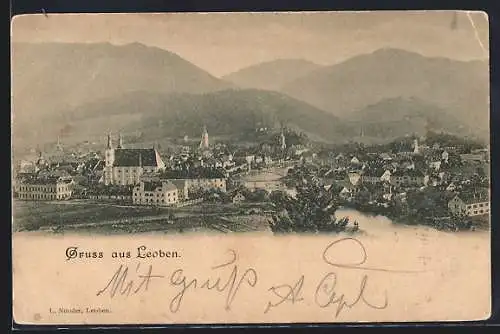 Gruss aus Leoben.
Mit Gruß
L. Nüssler, Leoben.